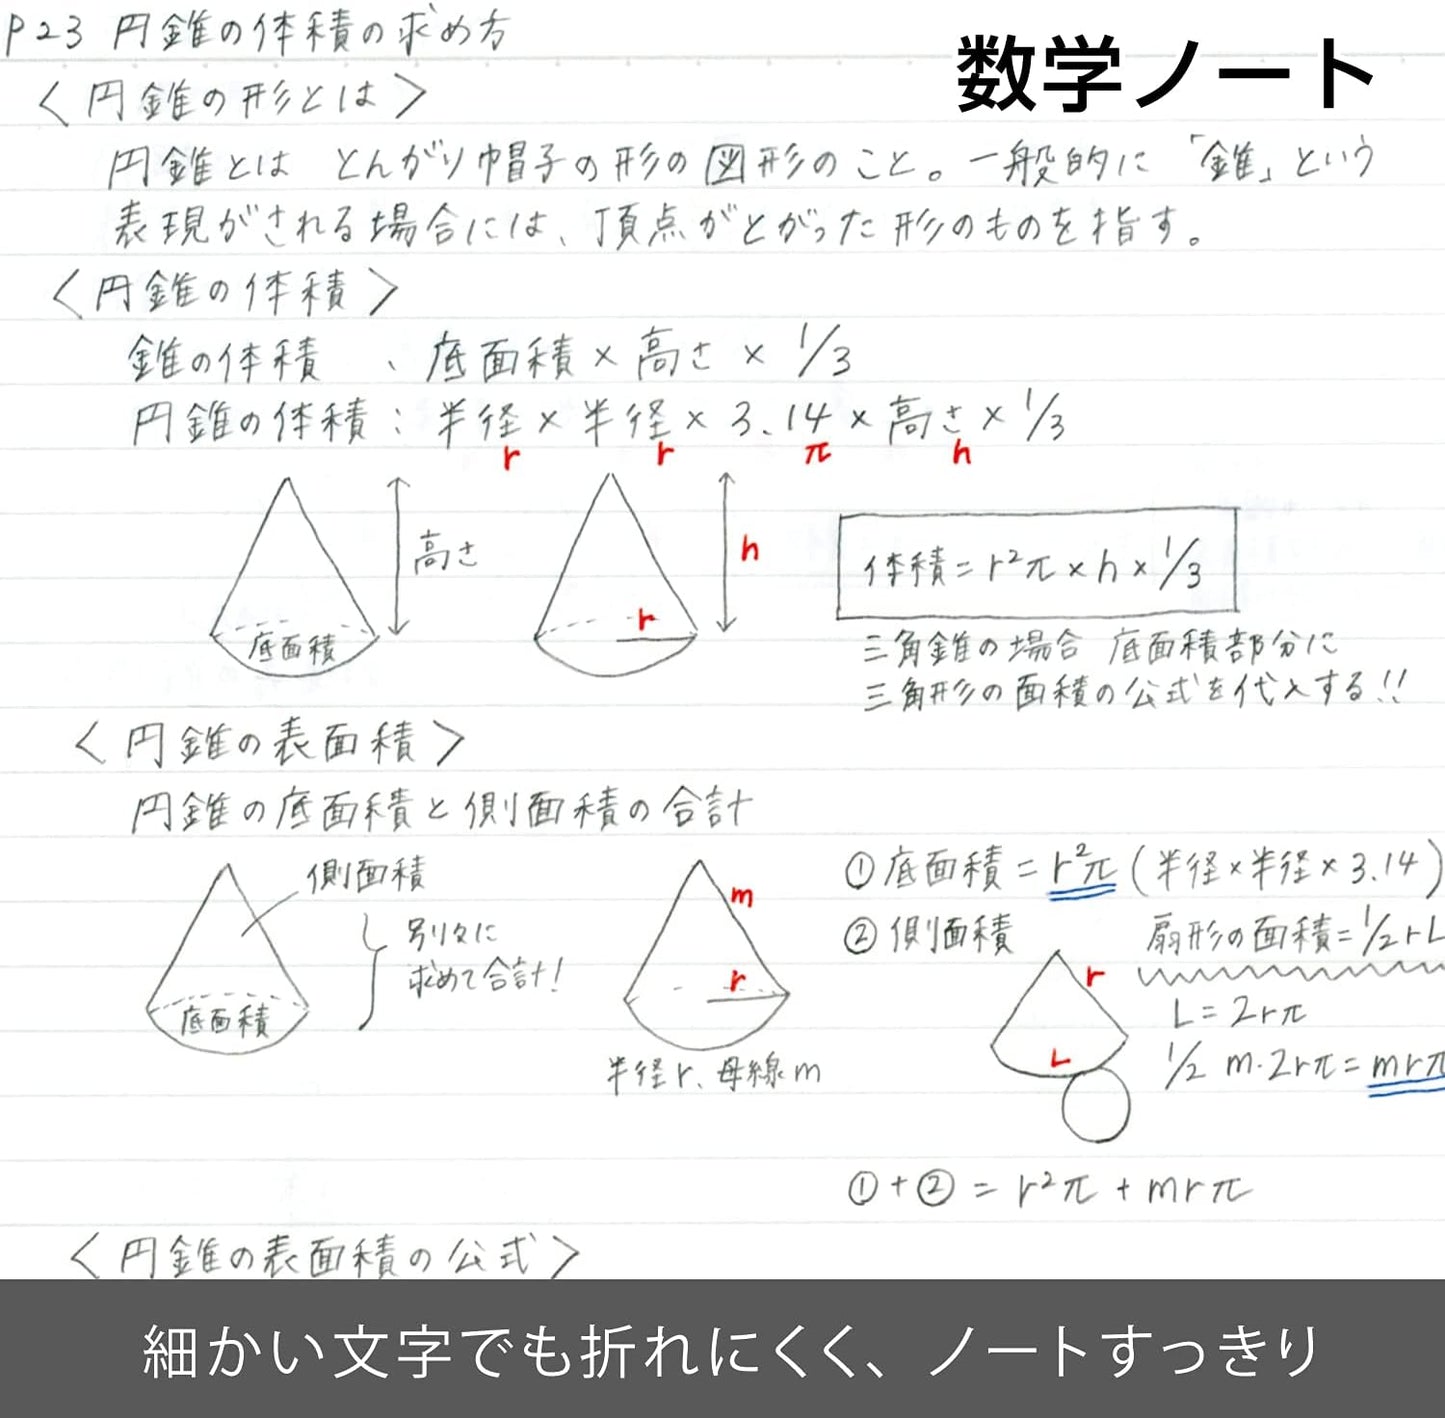 P23 円錐の体積の求め方
数学ノート
〈円錐の形とは〉
円錐とは とんがり帽子の形の図形のこと。一般的に「錐」という
表現がされる場合には、頂点がとがった形のものを指す。
〈円錐の体積〉
錐の体積 、底面積×高さ×1/3
円錐の体積:半径×半径×3.14×高さ×1/3
r r π h
高さ
底面積
h
r
体積=r²π×h×1/3
三角錐の場合 底面積部分に
三角形の面積の公式を代入する!!
〈円錐の表面積〉
円錐の底面積と側面積の合計
側面積
別々に
求めて合計!
底面積
m
r
半径r、母線m
①底面積=r²π(半径×半径×3.14)
②側面積 扇形の面積=1/2rL
r
L
L=2rπ
1/2 m·2rπ=mrπ
①+②=r²π+mrπ
〈円錐の表面積の公式〉
細かい文字でも折れにくく、ノートすっきり